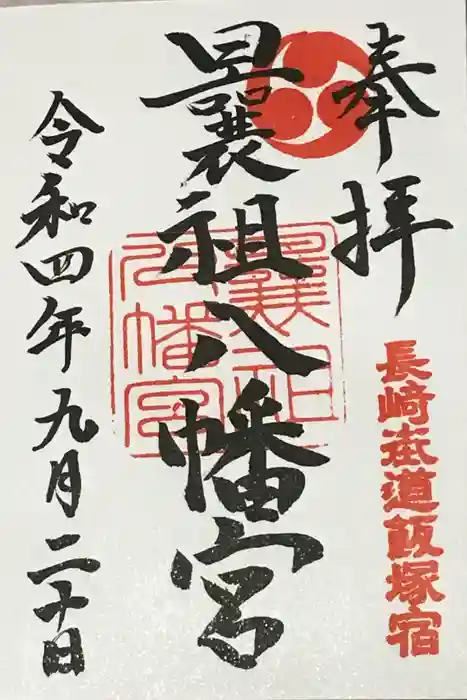 奉拝
長崎街道飯塚宿
曩祖八幡宮
曩祖八幡宮
令和四年九月二十日